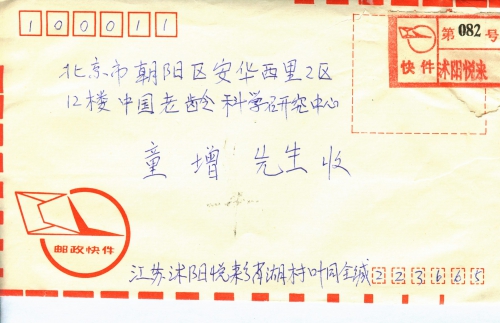 100011
第082号
快件 沭阳悦来
北京市朝阳区安华西里2区
12楼中国老龄科学研究中心
童增 先生 收
邮政快件
江苏沭阳悦来乡湖村叶同全缄 223665